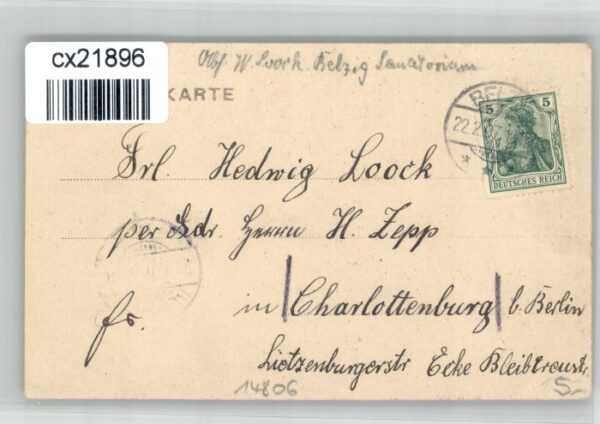 cx21896
Abs. W. Loock. Belzig Sanatorium
KARTE
BEL
22.
5 5
DEUTSCHES REICH
Frl. Hedwig Loock
per Adr. Herrn H. Zepp
fr.
in Charlottenburg b. Berlin
Lietzenburgerstr Ecke Bleibtreustr.
14806
5.-